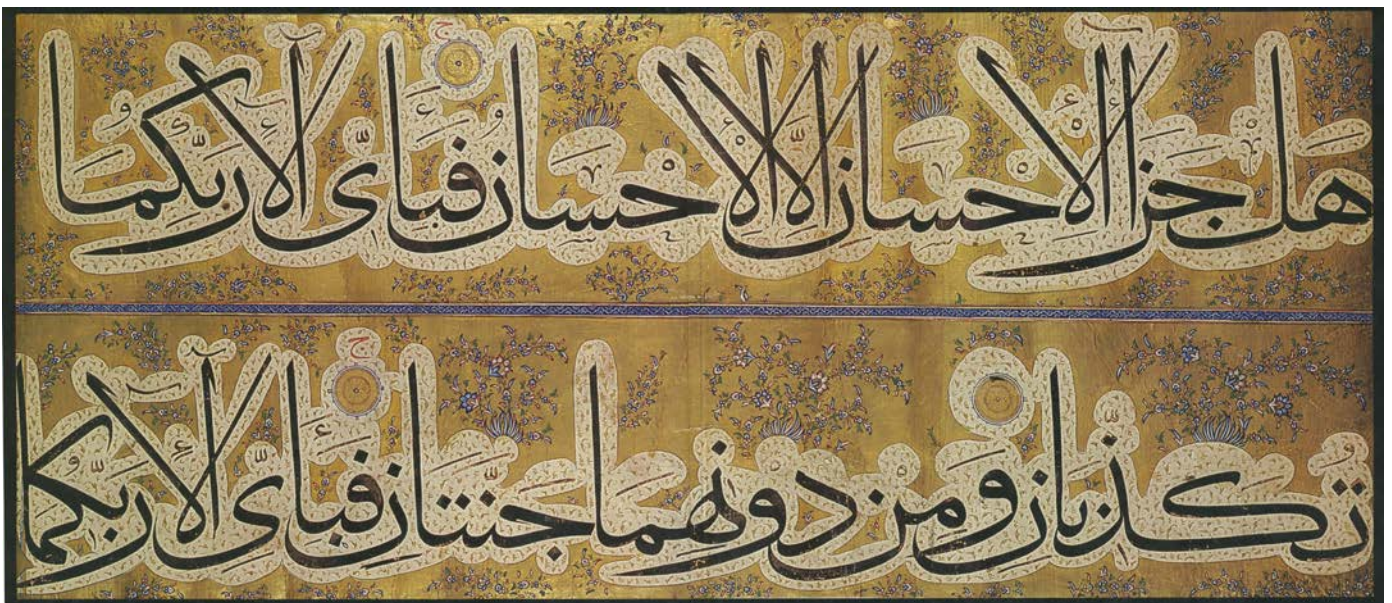 هَلْ جَزَآءُ ٱلْإِحْسَانِ إِلَّا ٱلْإِحْسَانُ ج فَبِأَىِّ ءَالَآءِ رَبِّكُمَا
تُكَذِّبَانِ وَمِنْ دُونِهِمَا جَنَّتَانِ ج فَبِأَىِّ ءَالَآءِ رَبِّكُمَا